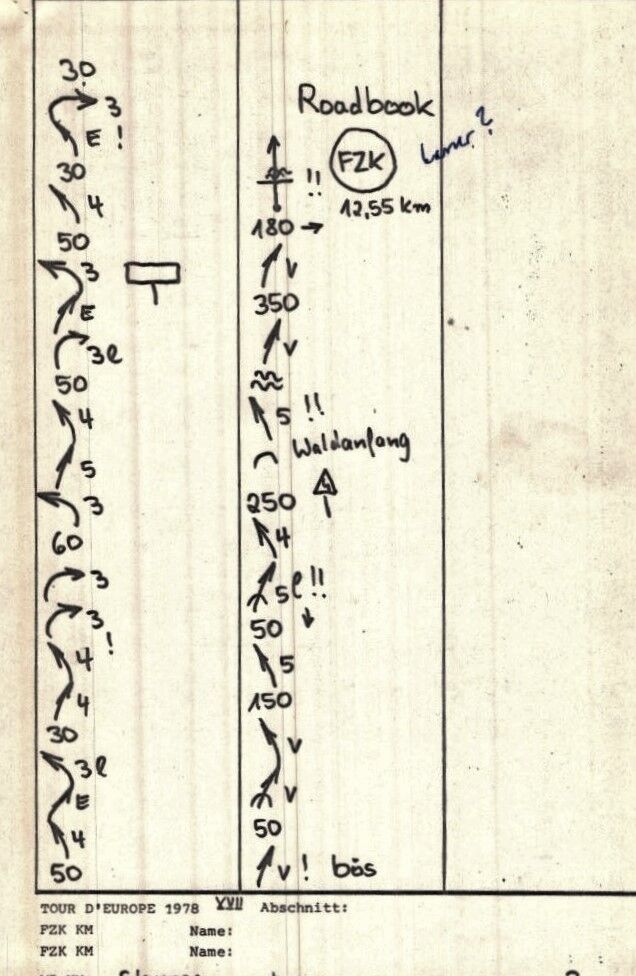 30
3
E !
30
4
50
3
E
3l
50
4
5
3
60
3
3
4 !
4
30
3l
E
4
50
Roadbook
FZK
12,55 km
!!
180
V
350
V
5 !!
Waldanfang
250
4
5 l !!
50
5
150
V
V
50
V ! bös
TOUR D'EUROPE 1978 Abschnitt:
FZK KM Name:
FZK KM Name: